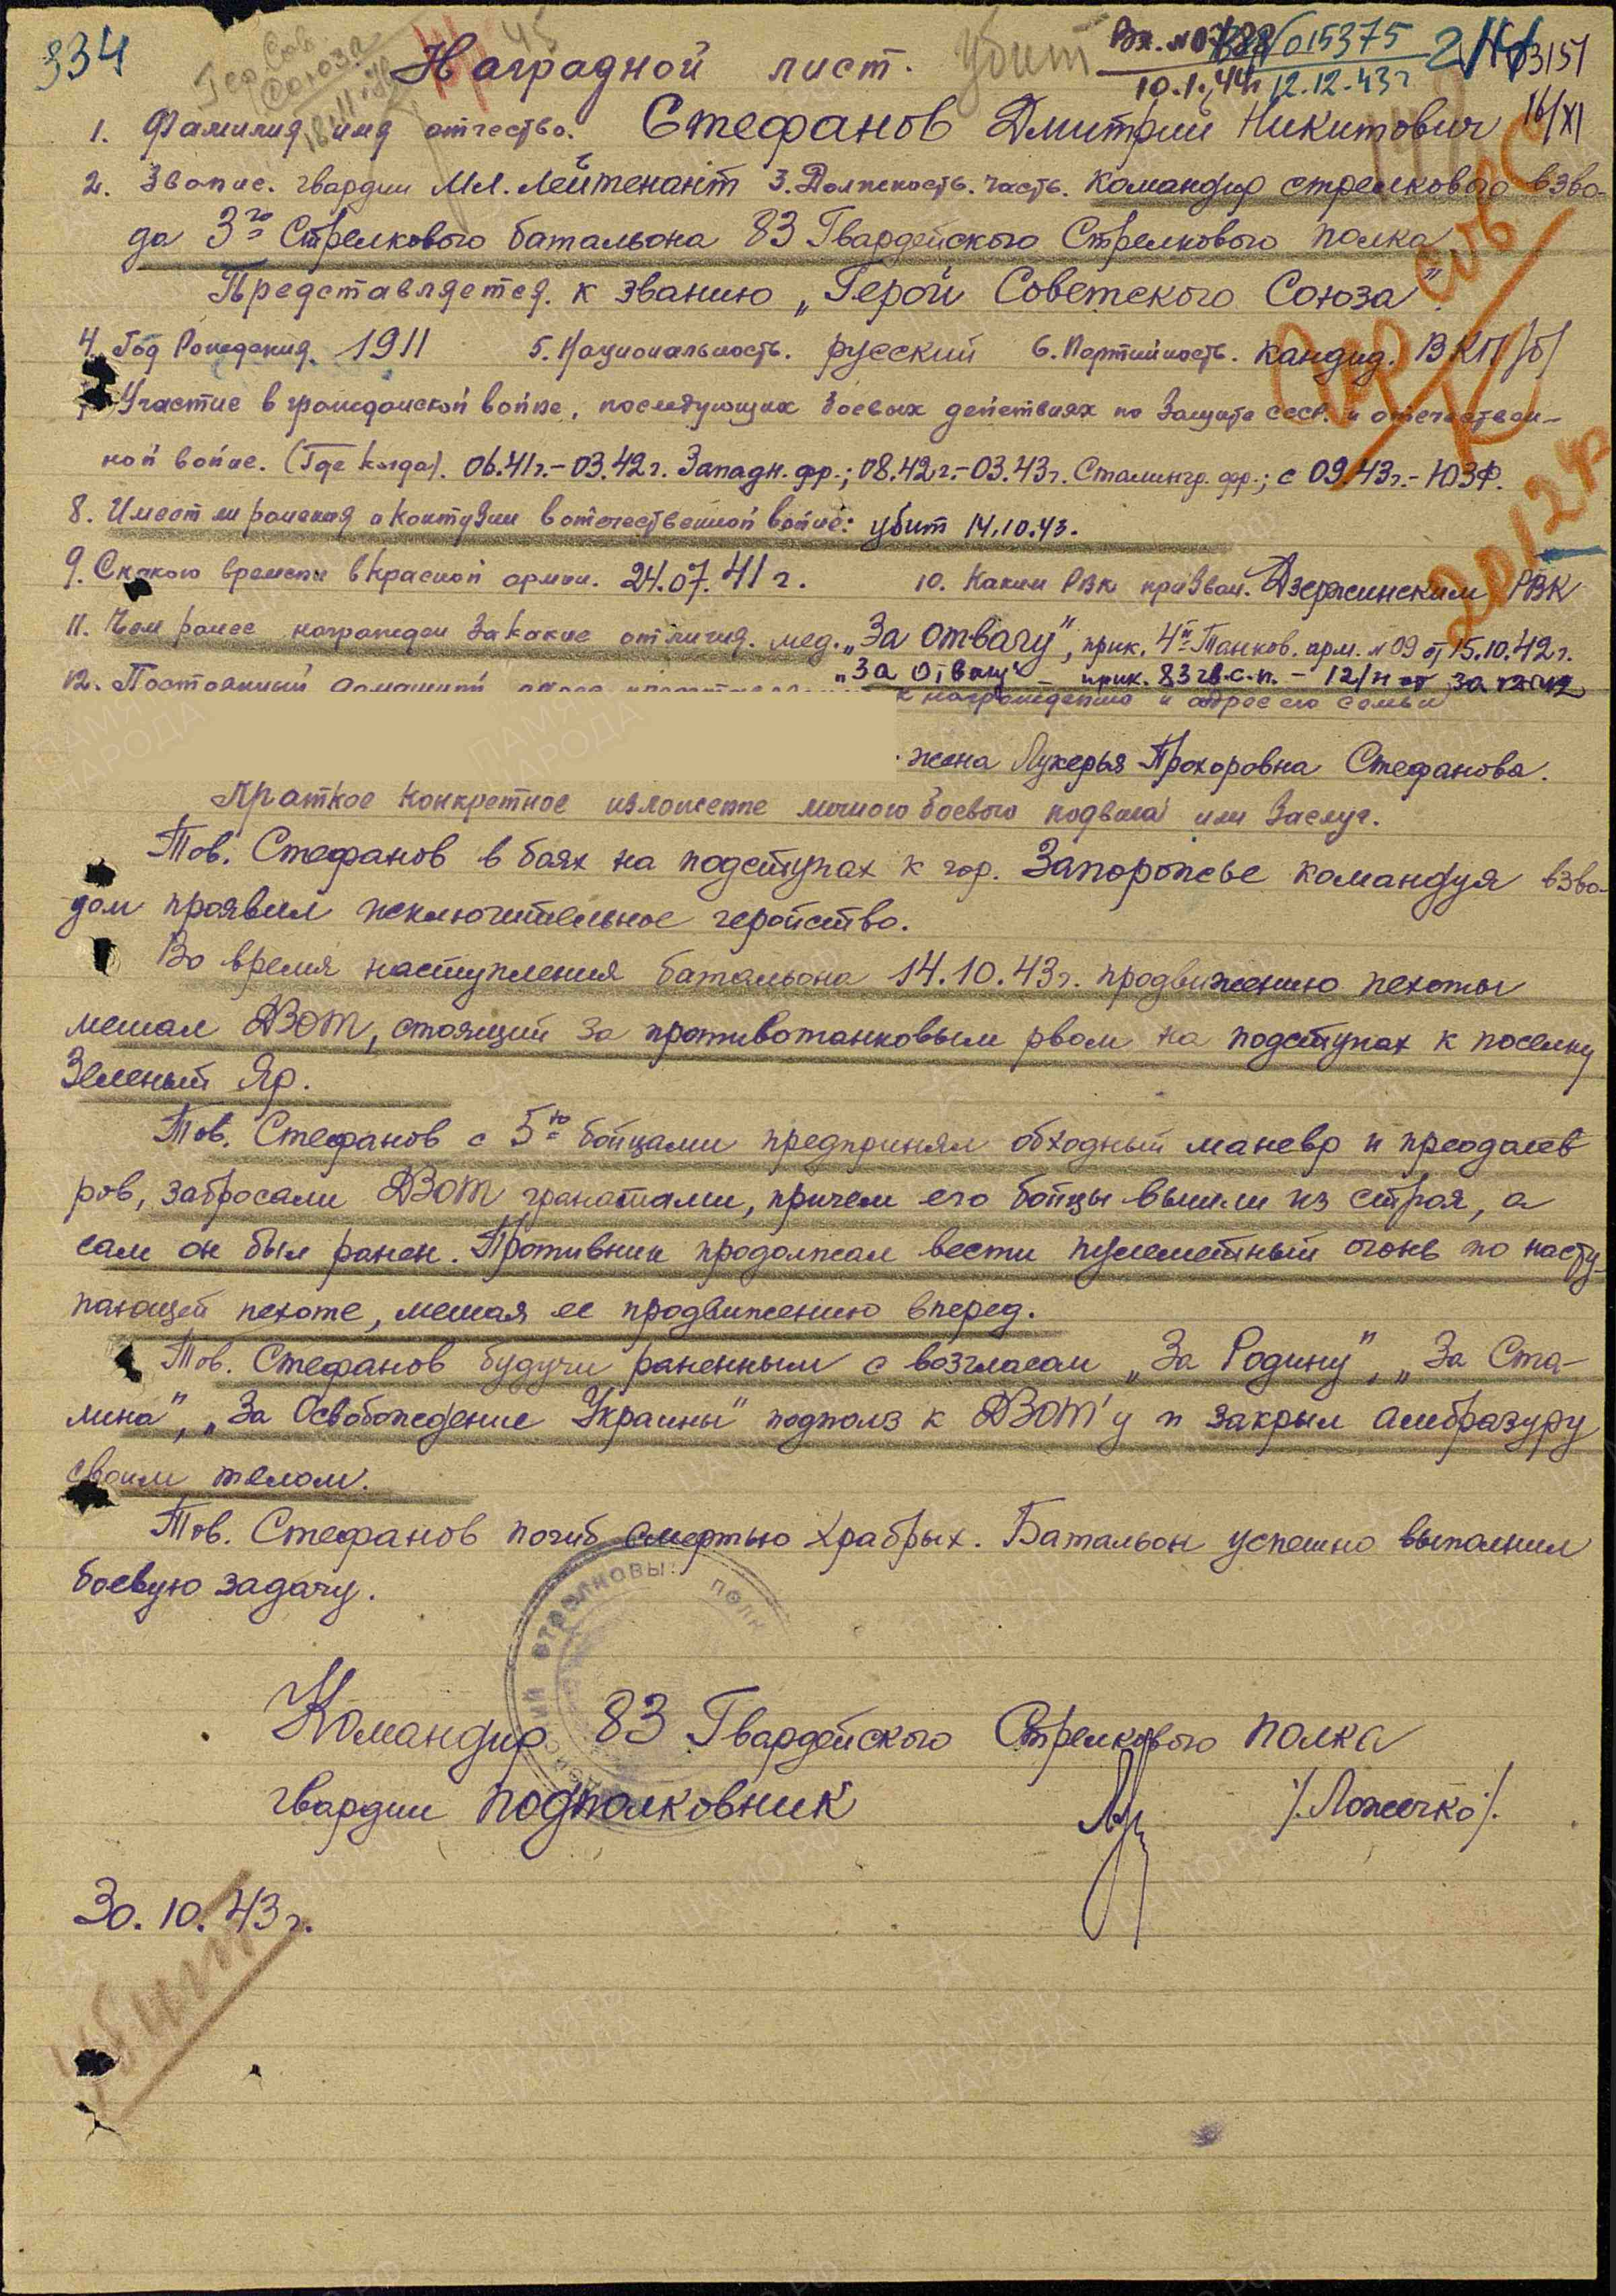 334
Гер. Сов.
Союза
45
убит
Вх. №
№ 015375
10.1.44г 12.12.43г
16/XI
Наградной лист.
1. Фамилия, имя отчество. Стефанов Дмитрий Никитович
2. Звание. гвардии Мл. Лейтенант 3. Должность. часть. командир стрелкового взво-
да 3го Стрелкового батальона 83 Гвардейского Стрелкового полка
Представляется к званию „Герой Советского Союза".
4. Год Рождения. 1911 5. Национальность. русский 6. Партийность. кандид. ВКП/б/
Участие в гражданской войне, последующих боевых действиях по защите СССР. и отечествен-
ной войне. (Где когда). 06.41г.-03.42г. Западн. фр.; 08.42г.-03.43г. Сталингр. фр.; с 09.43г.-ЮЗФ.
8. Имеет ли ранения и контузии в отечественной войне: убит 14.10.43.
9. С какого времени в Красной армии. 24.07.41г. 10. Каким РВК призван. Дзержинским РВК
11. Чем ранее награжден за какие отличия. мед. „За отвагу", прик. 4й Танков. арм. №09 от 15.10.42г.
„За Отвагу" - прик. 83 гв.с.п. - 12/н от
12. Постоянный домашний адрес
к награждению и адрес его семьи
жена Лукерья Прохоровна Стефанова.
Краткое конкретное изложение личного боевого подвига или Заслуг.
Тов. Стефанов в боях на подступах к гор. Запорожье командуя взво-
дом проявил исключительное геройство.
Во время наступления батальона 14.10.43г. продвижению пехоты
мешал ДЗОТ, стоящий за противотанковым рвом на подступах к поселку
Зеленый Яр.
Тов. Стефанов с 5ю бойцами предпринял обходный маневр и преодолев
ров, забросали ДЗОТ гранатами, причем его бойцы вышли из строя, а
сам он был ранен. Противник продолжал вести пулеметный огонь по насту-
пающей пехоте, мешая ее продвижению вперед.
Тов. Стефанов будучи раненным с возгласам „За Родину", „За Ста-
лина", „За Освобождение Украины" подполз к ДЗОТ'у и закрыл амбразуру
своим телом.
Тов. Стефанов погиб смертью храбрых. Батальон успешно выполнил
боевую задачу.
СТРЕЛКОВЫЙ ПОЛК
Командир 83 Гвардейского Стрелкового полка
гвардии подполковник /Ложечко/.
30.10.43г.
убит